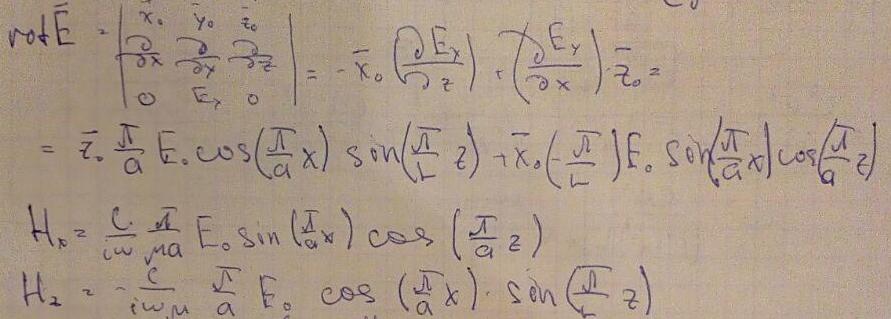 rot Ē = | x̄₀ ȳ₀ z̄₀ ; ∂/∂x ∂/∂y ∂/∂z ; 0 E_y 0 | = -x̄₀ (∂E_y/∂z) + (∂E_y/∂x) · z̄₀ =
= z̄₀ π/a E₀ cos(π/a x) sin(π/L z) + x̄₀ (-π/L) E₀ sin(π/a x) cos(π/a z)
Hₓ = c/iω π/μa E₀ sin(π/a x) cos(π/a z)
H_z = - c/iωμ π/a E₀ cos(π/a x) · sin(π/L z)